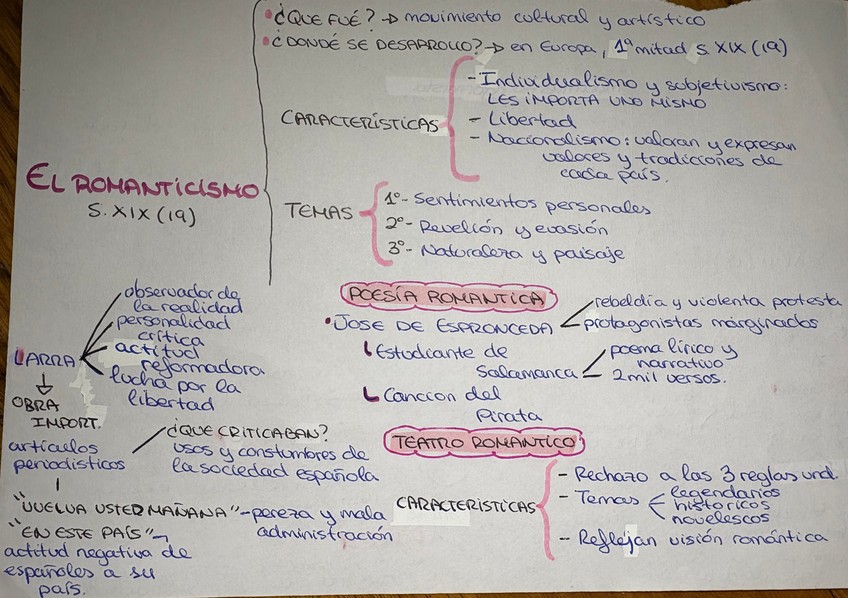 •¿QUE FUÉ? → movimiento cultural y artístico
•¿DONDÉ SE DESARROLLO? → en Europa, 1ª mitad S. XIX (19)
CARACTERÍSTICAS
- Individualismo y subjetivismo:
LES IMPORTA UNO MISMO
- Libertad
- Nacionalismo: valoran y expresan
valores y tradiciones de
cada país.
EL ROMANTICISMO
S. XIX (19)
TEMAS
1º- Sentimientos personales
2º- Revelión y evasión
3º- Naturaleza y paisaje
LARRA
observador de
la realidad
personalidad
crítica
actitud
reformadora
lucha por la
libertad
OBRA
IMPORT.
artículos
periodísticos
¿QUE CRITICABAN?
usos y constumbres de
la sociedad española
"VUELVA USTED MAÑANA" - pereza y mala
administración
"EN ESTE PAÍS" →
actitud negativa de
españoles a su
país.
POESÍA ROMANTICA
• JOSE DE ESPRONCEDA
rebeldía y violenta protesta
protagonistas marginados
Estudiante de
Salamanca
poema lírico y
narrativo
2 mil versos.
Cancion del
Pirata
TEATRO ROMANTICO
CARACTERÍSTICAS
- Rechazo a las 3 reglas und.
- Temas
legendarios
historicos
novelescos
- Reflejan visión romántica